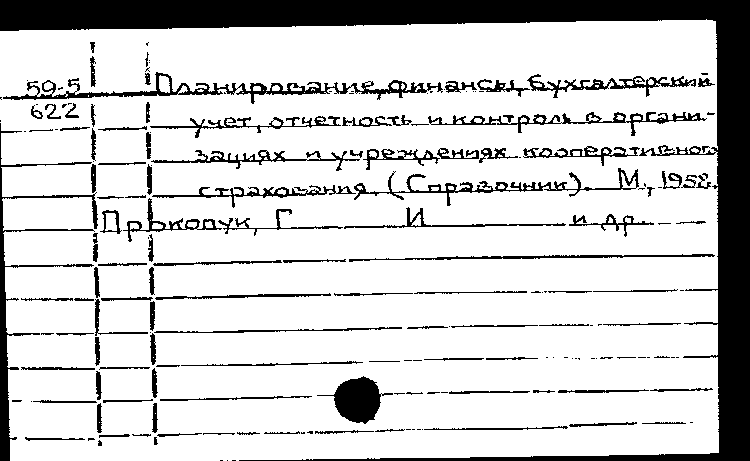 59-5 Планирование, финансы, бухгалтерский
622 учет, отчетность и контроль в органи-
зациях и учреждениях кооперативного
страхования. (Справочник). М., 1958.
Прокопук, Г И и др.